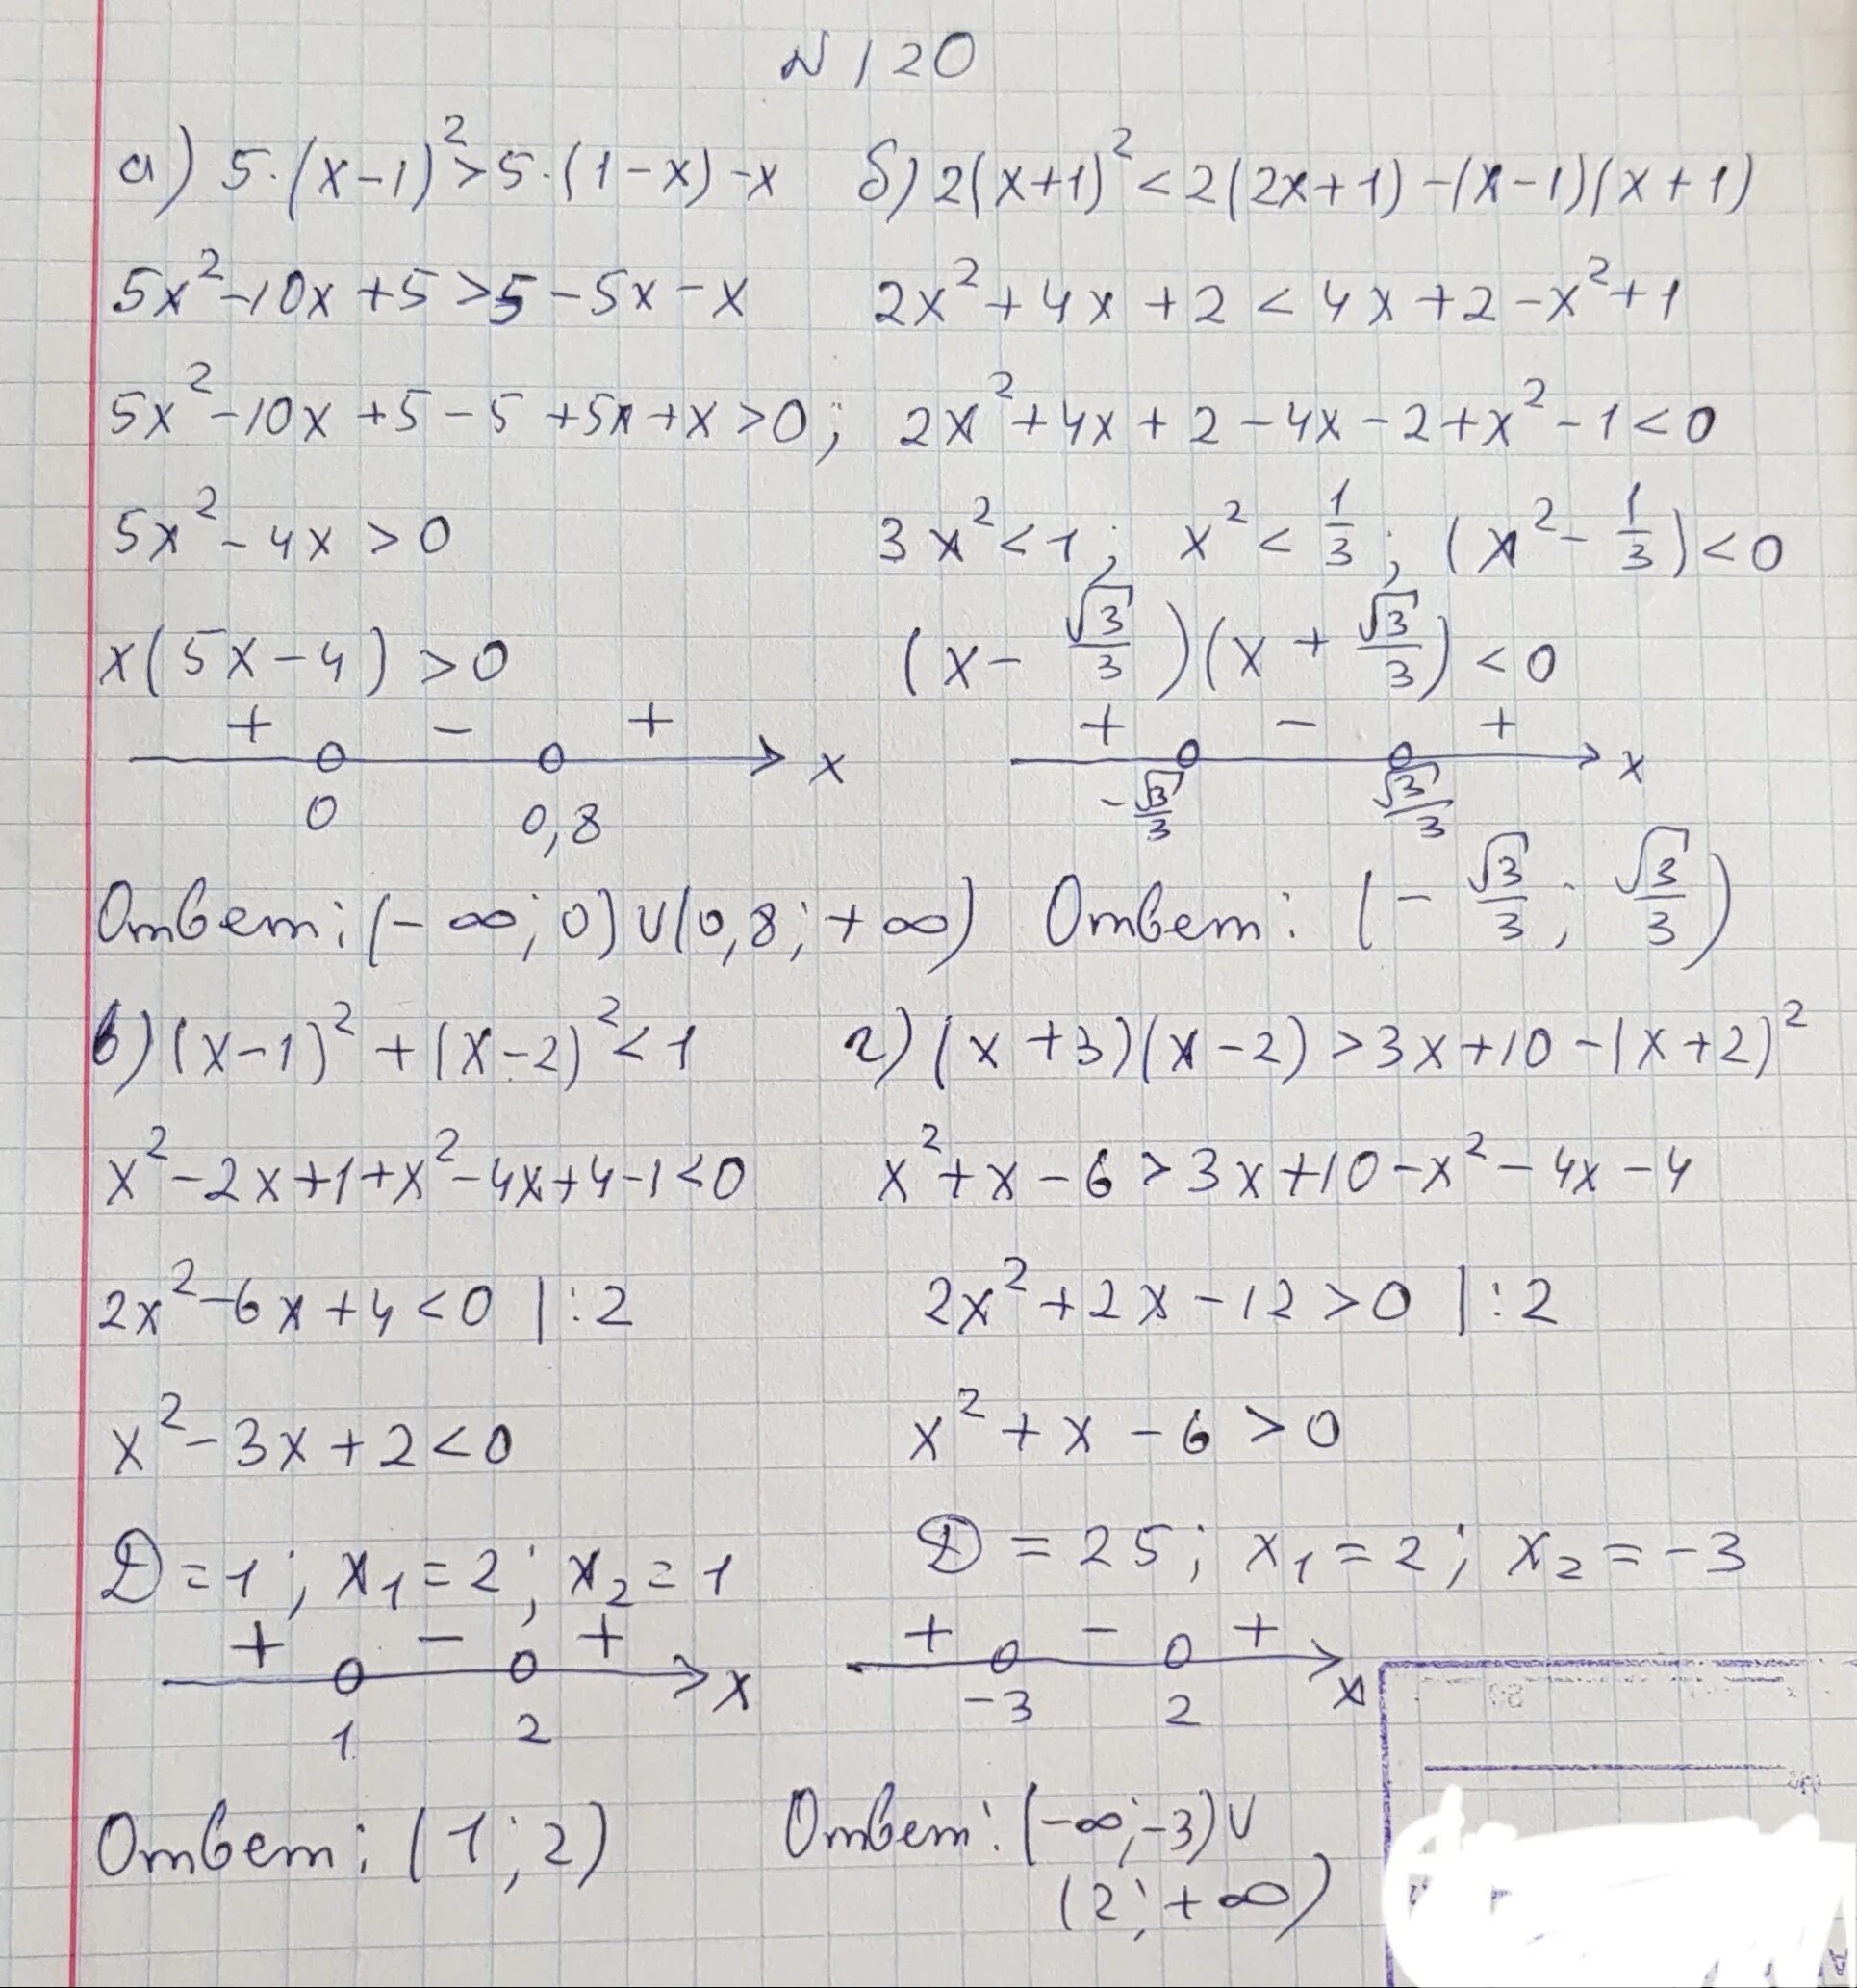 N 120
а) 5·(x-1)²>5·(1-x)-x
5x²-10x+5>5-5x-x
5x²-10x+5-5+5x+x>0;
5x²-4x>0
x(5x-4)>0
+ - +
0 0,8 x
Ответ: (-∞; 0)∪(0,8; +∞)
б) 2(x+1)²<2(2x+1)-(x-1)(x+1)
2x²+4x+2<4x+2-x²+1
2x²+4x+2-4x-2+x²-1<0
3x²<1; x²<1/3; (x²-1/3)<0
(x-√3/3)(x+√3/3)<0
+ - +
-√3/3 √3/3 x
Ответ: (-√3/3; √3/3)
в) (x-1)²+(x-2)²<1
x²-2x+1+x²-4x+4-1<0
2x²-6x+4<0 |:2
x²-3x+2<0
D=1; x₁=2; x₂=1
+ - +
1 2 x
Ответ: (1; 2)
г) (x+3)(x-2)>3x+10-(x+2)²
x²+x-6>3x+10-x²-4x-4
2x²+2x-12>0 |:2
x²+x-6>0
D=25; x₁=2; x₂=-3
+ - +
-3 2 x
Ответ: (-∞; -3)∪
(2; +∞)